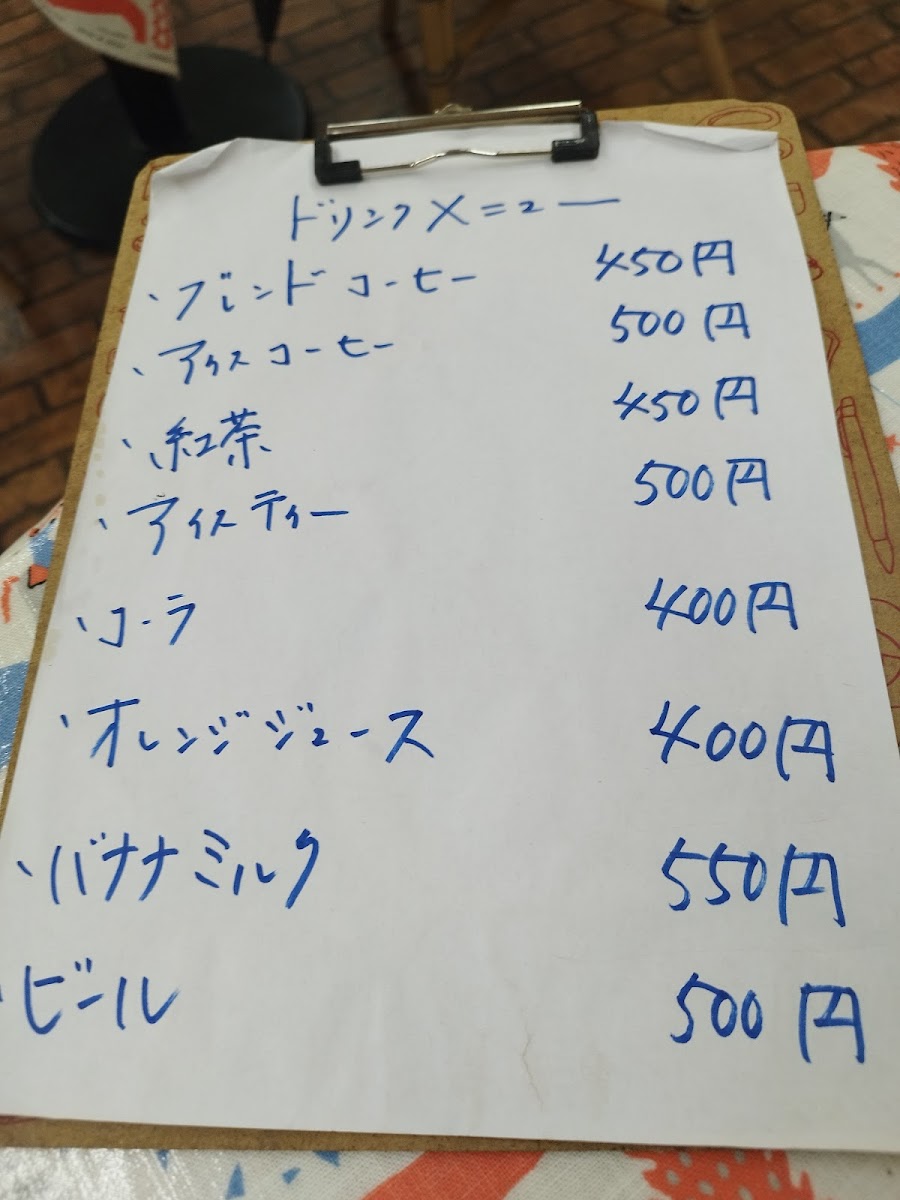 ドリンクメニュー
・ブレンドコーヒー 450円
・アイスコーヒー 500円
・紅茶 450円
・アイスティー 500円
・コーラ 400円
・オレンジジュース 400円
・バナナミルク 550円
・ビール 500円